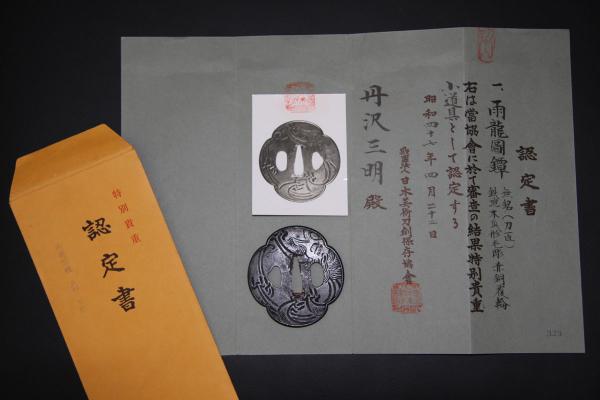 認定書
一、雨龍圖鐔
無名(刀匠)
鉄地木瓜形毛彫赤銅覆輪
右は當協會に於て審査の結果特別貴重
小道具として認定する
昭和四十七年四月二十二日
財團法人日本美術刀剣保存協會
丹沢三明殿
特別貴重
認定書